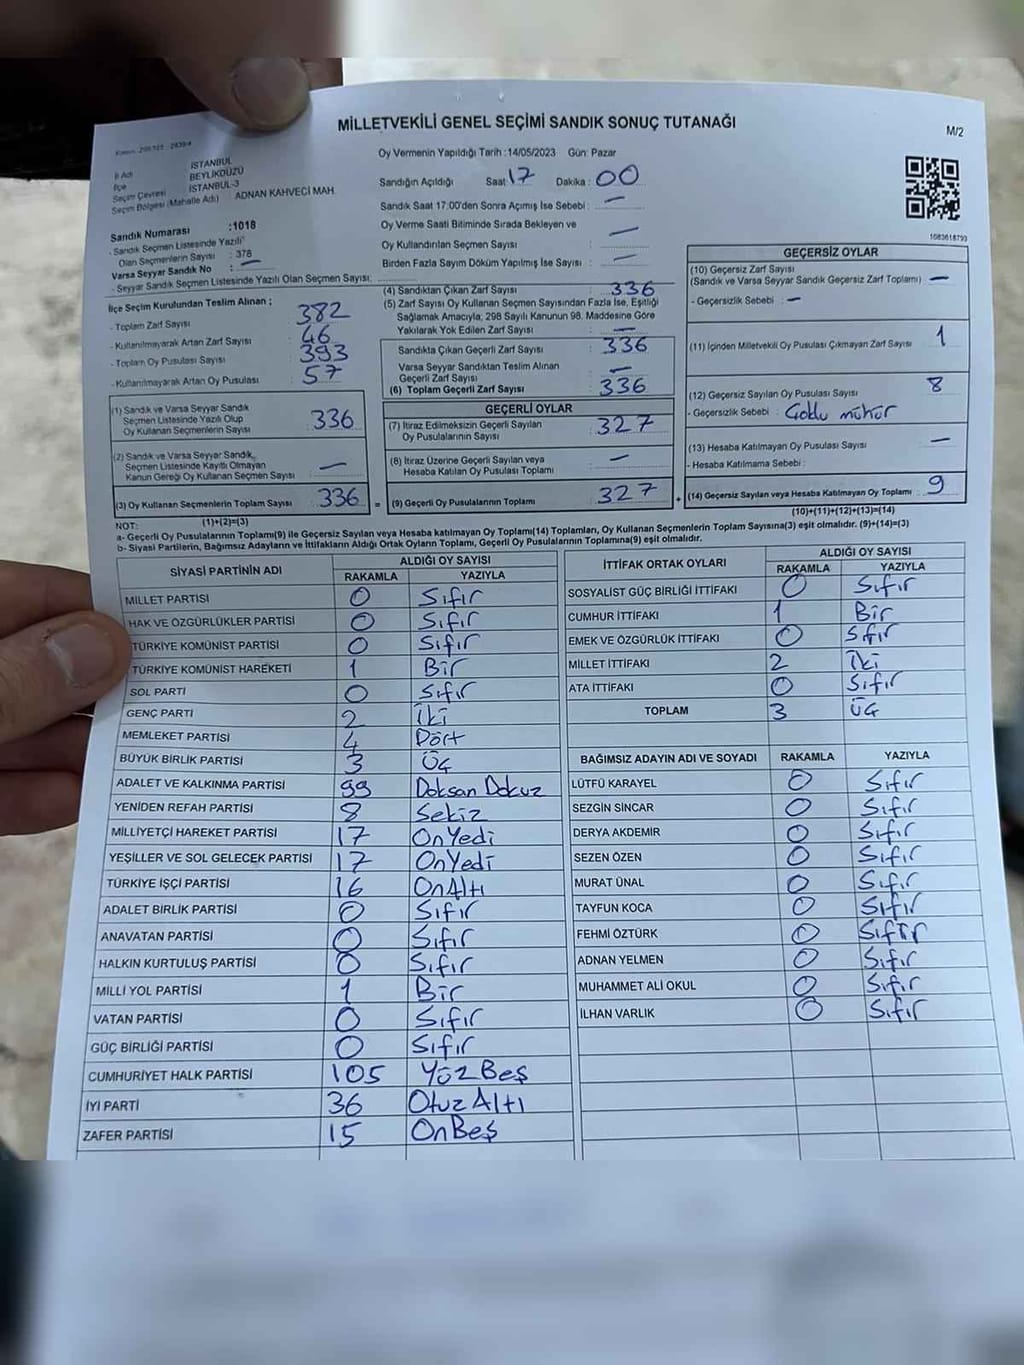 MİLLETVEKİLİ GENEL SEÇİMİ SANDIK SONUÇ TUTANAĞI
M/2
İl Adı İSTANBUL
İlçe BEYLİKDÜZÜ
Seçim Çevresi İSTANBUL-3
Seçim Bölgesi (Mahalle Adı) ADNAN KAHVECİ MAH.
Sandık Numarası :1018
- Sandık Seçmen Listesinde Yazılı
Olan Seçmenlerin Sayısı : 378
Varsa Seyyar Sandık No : —
- Seyyar Sandık Seçmen Listesinde Yazılı Olan Seçmen Sayısı:
Oy Vermenin Yapıldığı Tarih :14/05/2023 Gün: Pazar
Sandığın Açıldığı Saat: 17 Dakika : 00
Sandık Saat 17:00'den Sonra Açımış İse Sebebi : —
Oy Verme Saati Bitiminde Sırada Bekleyen ve
Oy Kullandırılan Seçmen Sayısı : —
Birden Fazla Sayım Döküm Yapılmış İse Sayısı : —
1083618793
İlçe Seçim Kurulundan Teslim Alınan ;
- Toplam Zarf Sayısı : 382
- Kullanılmayarak Artan Zarf Sayısı : 46
- Toplam Oy Pusulası Sayısı : 393
- Kullanılmayarak Artan Oy Pusulası : 57
(1) Sandık ve Varsa Seyyar Sandık
Seçmen Listesinde Yazılı Olup
Oy Kullanan Seçmenlerin Sayısı : 336
(2) Sandık ve Varsa Seyyar Sandık
Seçmen Listesinde Kayıtlı Olmayan
Kanun Gereği Oy Kullanan Seçmen Sayısı : —
(3) Oy Kullanan Seçmenlerin Toplam Sayısı : 336
(1)+(2)=(3)
(4) Sandıktan Çıkan Zarf Sayısı : 336
(5) Zarf Sayısı Oy Kullanan Seçmen Sayısından Fazla İse, Eşitliği
Sağlamak Amacıyla, 298 Sayılı Kanunun 98. Maddesine Göre
Yakılarak Yok Edilen Zarf Sayısı : —
Sandıkta Çıkan Geçerli Zarf Sayısı : 336
Varsa Seyyar Sandıktan Teslim Alınan
Geçerli Zarf Sayısı : —
(6) Toplam Geçerli Zarf Sayısı : 336
GEÇERLİ OYLAR
(7) İtiraz Edilmeksizin Geçerli Sayılan
Oy Pusulalarının Sayısı : 327
(8) İtiraz Üzerine Geçerli Sayılan veya
Hesaba Katılan Oy Pusulası Toplamı : —
= (9) Geçerli Oy Pusulalarının Toplamı : 327
GEÇERSİZ OYLAR
(10) Geçersiz Zarf Sayısı
(Sandık ve Varsa Seyyar Sandık Geçersiz Zarf Toplamı) —
- Geçersizlik Sebebi : —
(11) İçinden Milletvekili Oy Pusulası Çıkmayan Zarf Sayısı 1
(12) Geçersiz Sayılan Oy Pusulası Sayısı 8
- Geçersizlik Sebebi : Çoklu mühür
(13) Hesaba Katılmayan Oy Pusulası Sayısı —
- Hesaba Katılmama Sebebi :
+ (14) Geçersiz Sayılan veya Hesaba Katılmayan Oy Toplamı 9
(10)+(11)+(12)+(13)=(14)
NOT:
a- Geçerli Oy Pusulalarının Toplamı(9) ile Geçersiz Sayılan veya Hesaba katılmayan Oy Toplamı(14) Toplamları, Oy Kullanan Seçmenlerin Toplam Sayısına(3) eşit olmalıdır. (9)+(14)=(3)
b- Siyasi Partilerin, Bağımsız Adayların ve İttifakların Aldığı Ortak Oyların Toplamı, Geçerli Oy Pusulalarının Toplamına(9) eşit olmalıdır.
SİYASİ PARTİNİN ADI ALDIĞI OY SAYISI
RAKAMLA YAZIYLA
MİLLET PARTİSİ 0 Sıfır
HAK VE ÖZGÜRLÜKLER PARTİSİ 0 Sıfır
TÜRKİYE KOMÜNİST PARTİSİ 0 Sıfır
TÜRKİYE KOMÜNİST HAREKETİ 1 Bir
SOL PARTİ 0 Sıfır
GENÇ PARTİ 2 İki
MEMLEKET PARTİSİ 4 Dört
BÜYÜK BİRLİK PARTİSİ 3 Üç
ADALET VE KALKINMA PARTİSİ 99 Doksan Dokuz
YENİDEN REFAH PARTİSİ 8 Sekiz
MİLLİYETÇİ HAREKET PARTİSİ 17 OnYedi
YEŞİLLER VE SOL GELECEK PARTİSİ 17 OnYedi
TÜRKİYE İŞÇİ PARTİSİ 16 OnAltı
ADALET BİRLİK PARTİSİ 0 Sıfır
ANAVATAN PARTİSİ 0 Sıfır
HALKIN KURTULUŞ PARTİSİ 0 Sıfır
MİLLİ YOL PARTİSİ 1 Bir
VATAN PARTİSİ 0 Sıfır
GÜÇ BİRLİĞİ PARTİSİ 0 Sıfır
CUMHURİYET HALK PARTİSİ 105 YüzBeş
İYİ PARTİ 36 OtuzAltı
ZAFER PARTİSİ 15 OnBeş
İTTİFAK ORTAK OYLARI ALDIĞI OY SAYISI
RAKAMLA YAZIYLA
SOSYALİST GÜÇ BİRLİĞİ İTTİFAKI 0 Sıfır
CUMHUR İTTİFAKI 1 Bir
EMEK VE ÖZGÜRLÜK İTTİFAKI 0 Sıfır
MİLLET İTTİFAKI 2 İki
ATA İTTİFAKI 0 Sıfır
TOPLAM 3 Üç
BAĞIMSIZ ADAYIN ADI VE SOYADI RAKAMLA YAZIYLA
LÜTFÜ KARAYEL 0 Sıfır
SEZGİN SİNCAR 0 Sıfır
DERYA AKDEMİR 0 Sıfır
SEZEN ÖZEN 0 Sıfır
MURAT ÜNAL 0 Sıfır
TAYFUN KOCA 0 Sıfır
FEHMİ ÖZTÜRK 0 Sıfır
ADNAN YELMEN 0 Sıfır
MUHAMMET ALİ OKUL 0 Sıfır
İLHAN VARLIK 0 Sıfır